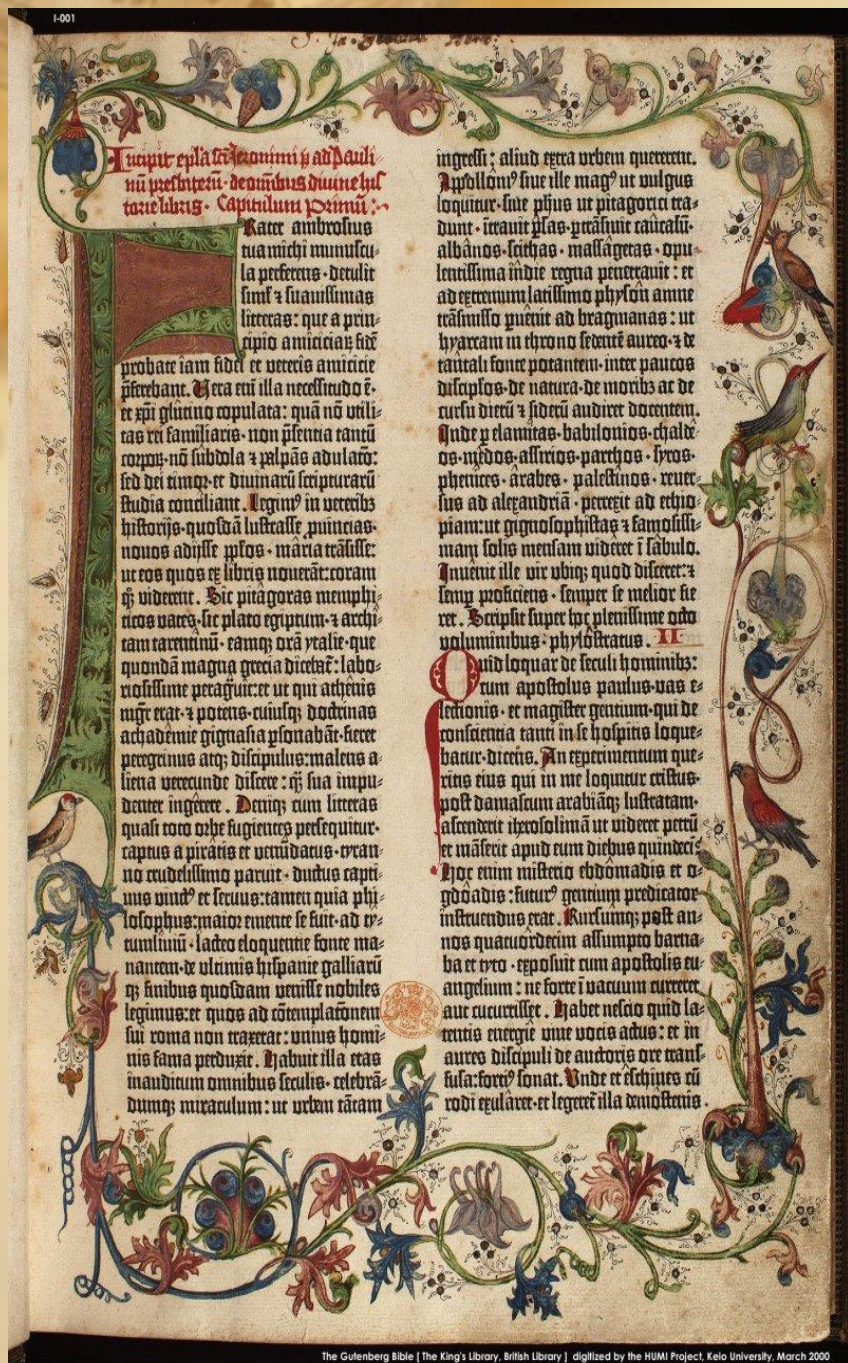 I-001
Incipit epl̃a sc̃i Jeronimi p̃ ad Pauli⸗
nũ presbiterũ · de om̃ibus diuine his
torie libris · Capitulum Primũ :·
Frater ambrosius
tua michi munuscu⸗
la perferens · detulit
siml̃ ⁊ suauissimas
litteras : que a prin⸗
cipio amiciciaꝝ fidẽ
probate iam fidei et veteris amicicie
p̃ferebant. Vera em̃ illa necessitudo ẽ ·
et xp̃i glutino copulata : quã nõ vtili⸗
tas rei familiaris · non p̃sentia tantũ
corpoꝝ · nõ subdola ⁊ palpãs adulaco :
sed dei timor · et diuinarũ scripturarũ
studia conciliant. Legimꝰ in veteribꝫ
historijs · quosdã lustrasse ꝓuincias ·
nouos adijsse pp̃los · maria trãsisse :
ut eos quos ex libris nouerãt : coram
qꝫ viderent. Sic pitagoras memphi⸗
ticos vates · sic plato egiptum · ⁊ archi⸗
tam tarentinũ · eamqꝫ orã ytalie · que
quondã magna grecia dicebat̃ : labo⸗
riosissime peragũit : et ut qui athenis
mgr̃ erat · ⁊ potens · cuiusqꝫ doctrinas
achademie gignasia ꝑsonabãt · fieret
peregrinus atqꝫ discipulus : malens a⸗
liena verecunde discere : qꝫ̃ sua impu⸗
denter ingerere. Deniqꝫ cum litteras
quasi toto orbe fugientes persequitur ·
captus a piratis et venũdatus · tyran⸗
no crudelissimo paruit · ductus capti⸗
uus vinctꝰ et seruus : tamen quia phi⸗
losophus : maior emente se fuit · ad ty⸗
tumliuiũ · lacteo eloquentie fonte ma⸗
nantem · de vltimis hispanie galliarũ
qꝫ finibus quosdam venisse nobiles
legimus : et quos ad cõtemplatõnem
sui roma non traxerat : vnius homi⸗
nis fama perduxit. Habuit illa etas
inauditum omnibus seculis · celebrã⸗
dumqꝫ miraculum : ut vrbem tãtam
ingressi : aliud extra vrbem quererent.
Appollonꝰ siue ille magꝰ ut vulgus
loquitur · siue ph̃us ut pitagorici tra⸗
dunt · ĩtrauit p̃sas · ꝑtrãsiuit caucasũ ·
albanos · scithas · massagetas · opu⸗
lentissima indie regna penetrauit : et
ad extremum latissimo physon amne
trãsmisso ꝑuẽit ad bragmanas : ut
hyarcam in throno sedentẽ aureo · ⁊ de
tantali fonte potantem · inter paucos
discipl̃os · de natura · de moribꝫ ac de
cursu dierũ ⁊ siderũ audiret docentem.
Inde ꝑ elamitas · babilonios · chalde⸗
os · medos · assirios · parthos · syros ·
phenices · arabes · palestinos · reuer⸗
sus ad alexandriã · perrexit ad ethio⸗
piam : ut gignosophistas ⁊ famosissi⸗
mam solis mensam videret ĩ sabulo.
Inuenit ille vir vbiqꝫ quod disceret : ⁊
semꝑ proficiens · semper se melior fie
ret. Scripsit super hoc plenissime octo
voluminibus · phylostratus. II
Quid loquar de seculi hominibꝫ :
cum apostolus paulus · vas e⸗
lectionis · et magister gentium · qui de
conscientia tanti in se hospitis loque⸗
batur · dicens. An experimentum que⸗
ritis eius qui in me loquitur cristus ·
post damascum arabiãqꝫ lustratam ·
ascenderit iherosolimã ut videret petrũ
et mãserit apud eum diebus quindeci⸗
Hoc enim misterio ebdomadis et o⸗
gdoadis : futurꝰ gentium predicator
instruendus erat. Rursumqꝫ post an⸗
nos quatuordecim assumpto barna⸗
ba et tyto · exposuit cum apostolis eu⸗
angelium : ne forte ĩ vacuum curreret
aut cucurrisset. Habet nescio quid la⸗
tentis energie viue vocis actus : et in
aures discipuli de auctoris ore trans⸗
fusa : fortiꝰ sonat. Vnde et eschines cũ
rodi exularet · et legeret̃ illa demostenis ·
The Gutenberg Bible [ The King's Library, British Library ] digitized by the HUMI Project, Keio University, March 2000